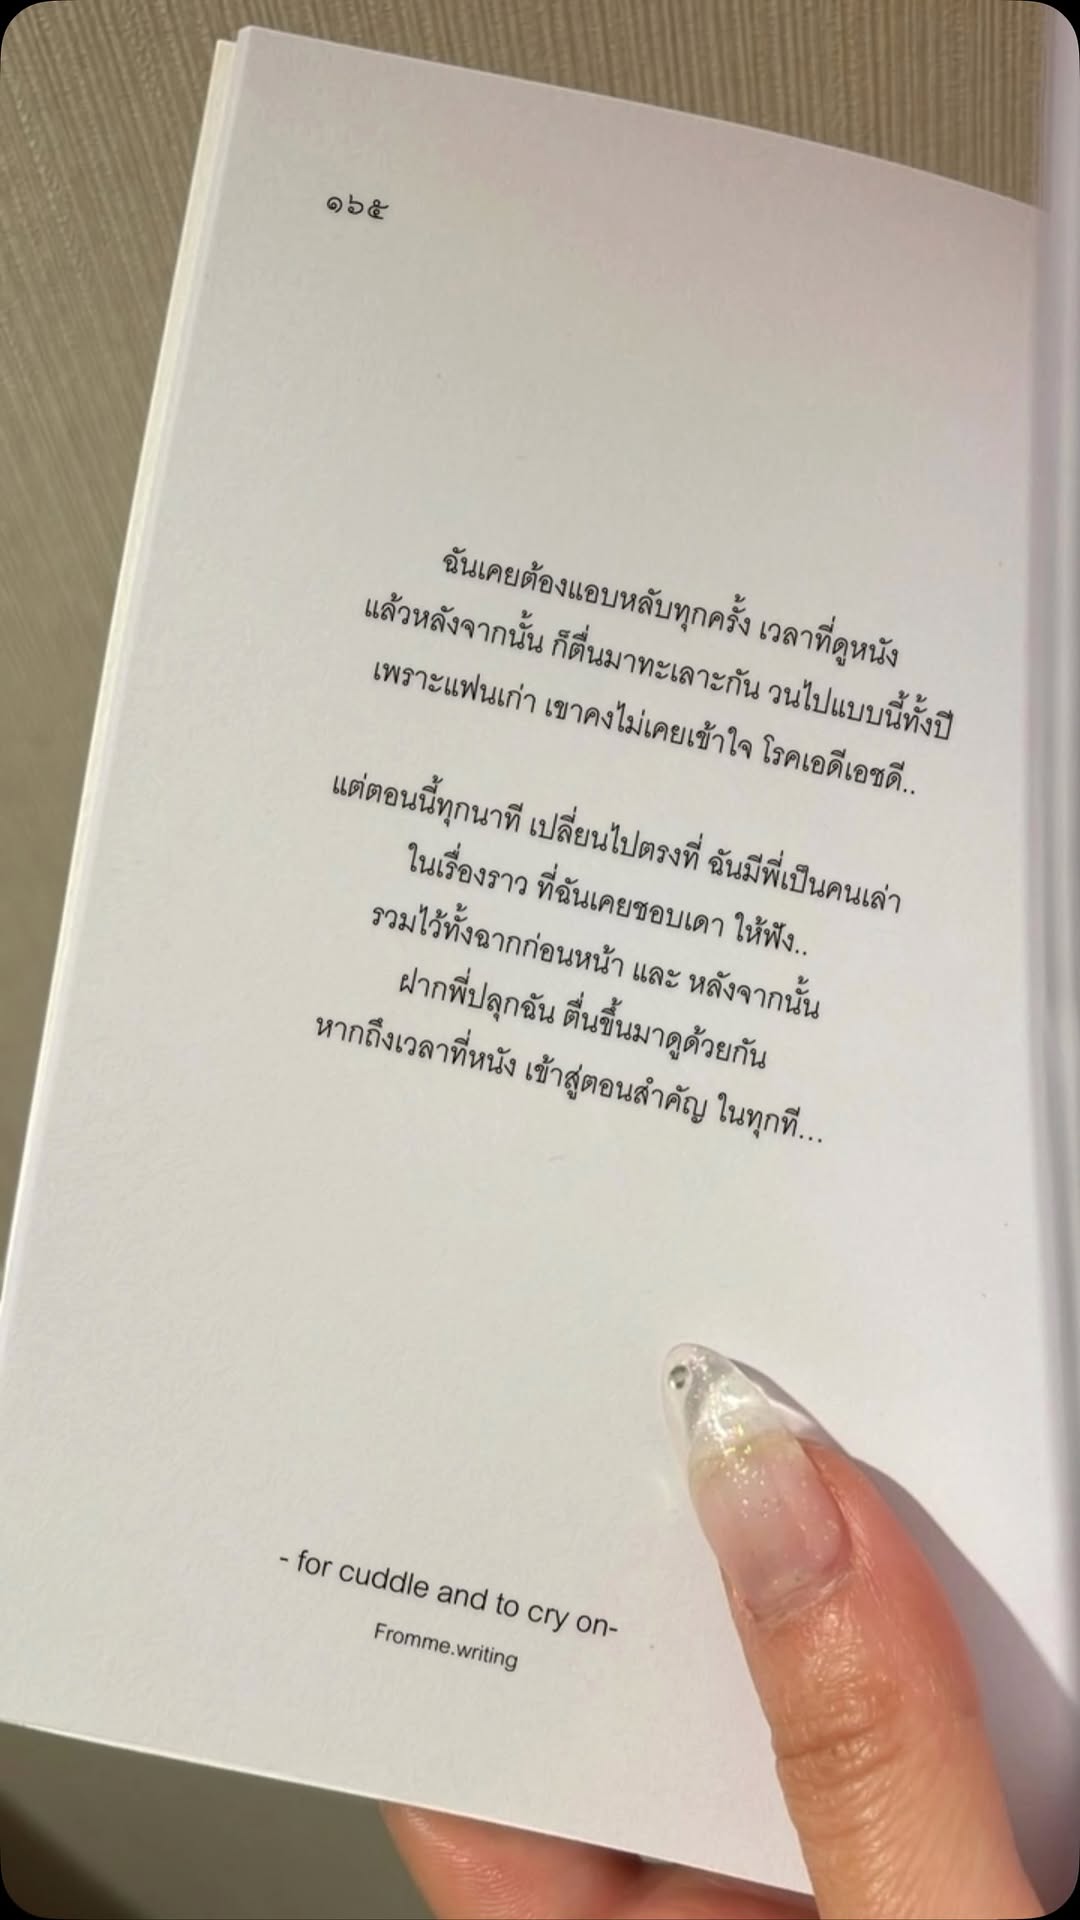 ๑๖๕
ฉันเคยต้องแอบหลับทุกครั้ง เวลาที่ดูหนัง
แล้วหลังจากนั้น ก็ตื่นมาทะเลาะกัน วนไปแบบนี้ทั้งปี
เพราะแฟนเก่า เขาคงไม่เคยเข้าใจ โรคเอดีเอชดี..
แต่ตอนนี้ทุกนาที เปลี่ยนไปตรงที่ ฉันมีพี่เป็นคนเล่า
ในเรื่องราว ที่ฉันเคยชอบเดา ให้ฟัง..
รวมไว้ทั้งฉากก่อนหน้า และ หลังจากนั้น
ฝากพี่ปลุกฉัน ตื่นขึ้นมาดูด้วยกัน
หากถึงเวลาที่หนัง เข้าสู่ตอนสำคัญ ในทุกที...
- for cuddle and to cry on-
Fromme.writing